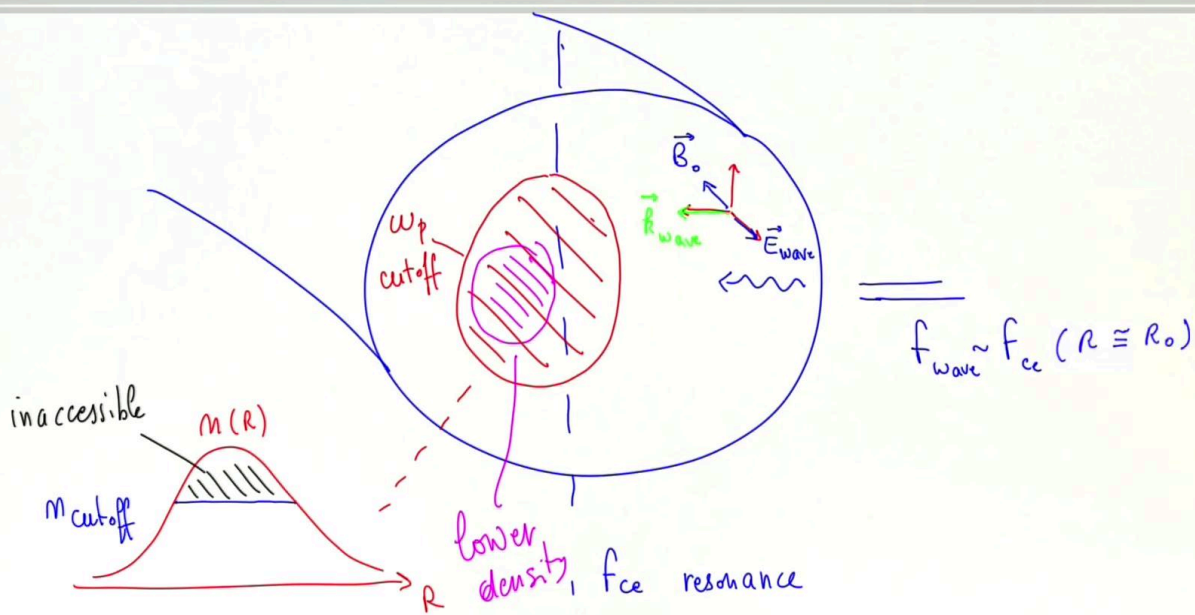 B₀
k wave
E wave
ωp
cutoff
f wave ~ f ce (R ≅ R₀)
inaccessible
n(R)
n cutoff
R
lower
density
f ce resonance